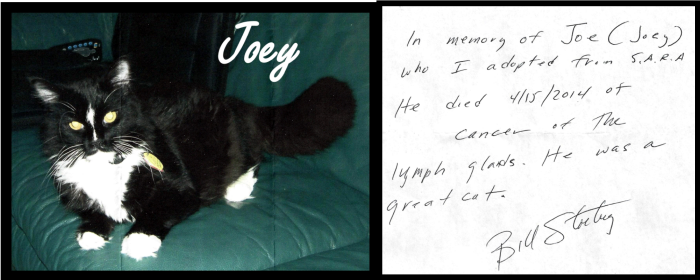 Joey
In memory of Joe (Joey)
who I adopted from S.A.R.A
He died 4/15/2014 of
cancer of The
lymph glands. He was a
great cat.
Bill